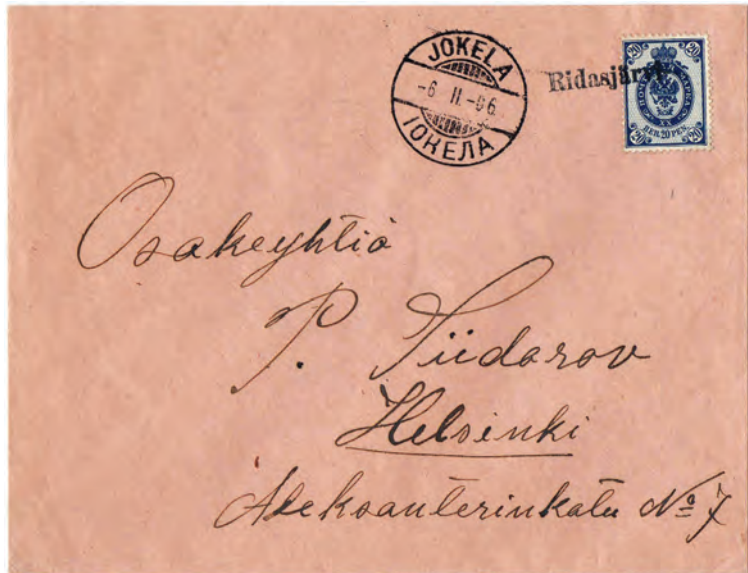 JOKELA
-6 II.-06.
ІОКЕЛА
Ridasjärvi
20 20
ПОЧ МАРКА
XX
PEN. 20 PEN.
20 20
Osakeyhtiö
P. Siidorov
Helsinki
Aleksanterinkatu № 7